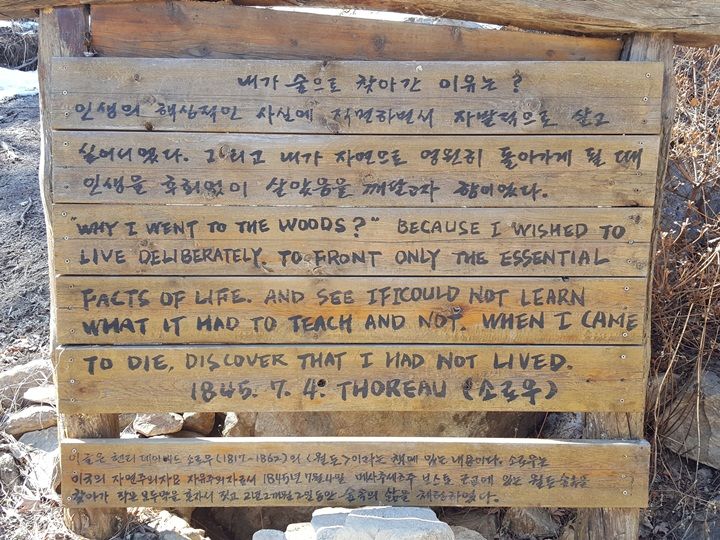 내가 숲으로 찾아간 이유는?
인생의 핵심적인 사실에 직면하면서 자발적으로 살고
싶어서였다. 그리고 내가 자연으로 영원히 돌아가게 될 때
인생을 후회없이 살았음을 깨닫고자 함이었다.
"WHY I WENT TO THE WOODS?" BECAUSE I WISHED TO
LIVE DELIBERATELY. TO FRONT ONLY THE ESSENTIAL
FACTS OF LIFE. AND SEE IF I COULD NOT LEARN
WHAT IT HAD TO TEACH AND NOT. WHEN I CAME
TO DIE, DISCOVER THAT I HAD NOT LIVED.
1845. 7. 4. THOREAU (소로우)
이 글은 헨리 데이비드 소로우(1817-1862)의 <월든>이라는 책에 있는 내용이다. 소로우는
미국의 자연주의자요 자유주의자로서 1845년 7월 4일 메사추세츠주 보스톤 근교에 있는 월든 숲속을
찾아가 작은 오두막을 혼자서 짓고 2년 2개월 2일 동안 숲속의 삶을 체험하였다.